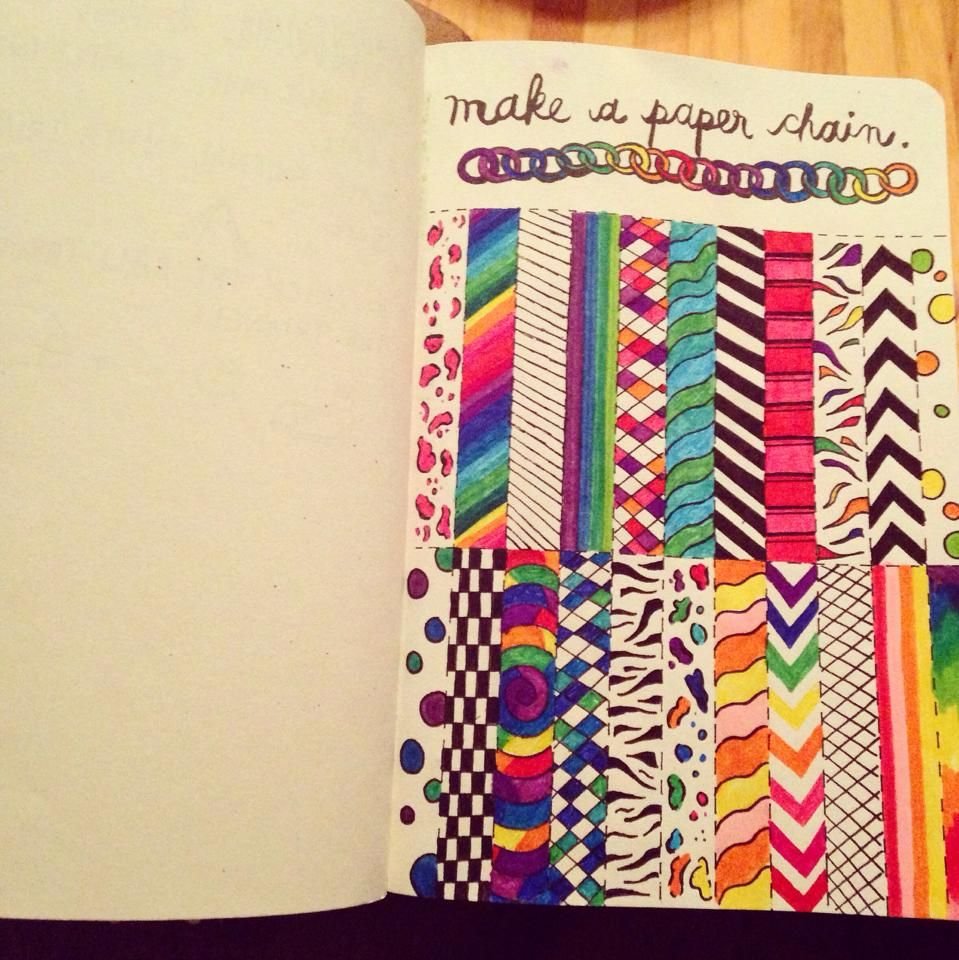 make a paper chain.